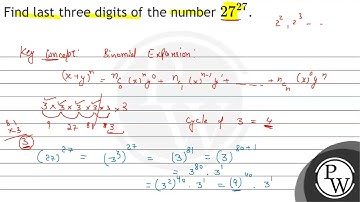 Find last three digits of the number 27^27.
2², 2³ - - -
Key Concept: Binomial Expansion:
(x+y)^n = nC₀ (x)^n y⁰ + nC₁ (x)^{n-1} y¹ + ....... + nCₙ (x)⁰ y^n
3 × 3 × 3 × 3 × 3 × 2
9 27 81 3
cycle of 3 = 4
81
×3
3
(27)^27 = (3³)^27 = (3)^81 = (3)^{80+1}
= 3^80 . 3¹
= (3²)^40 . 3¹ = (9)^40 . 3¹
PW